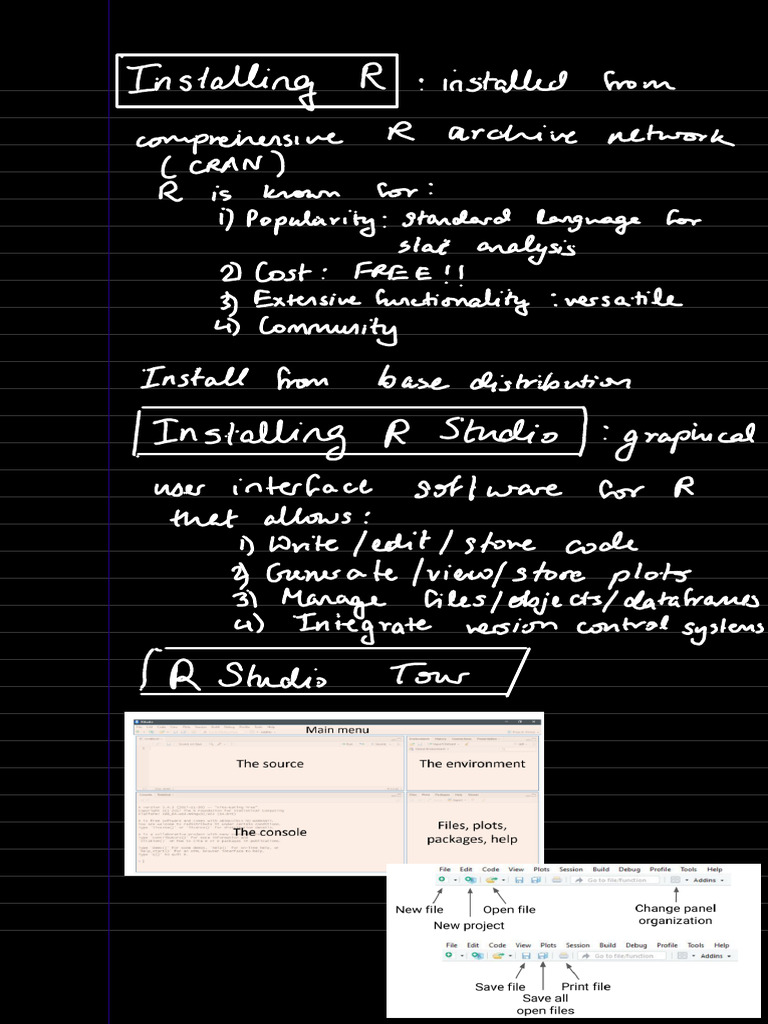 Installing R : installed from
comprehensive R archive network
(CRAN)
R is known for:
1) Popularity: standard language for
stat analysis
2) Cost: FREE!!
3) Extensive functionality : versatile
4) Community
Install from base distribution
Installing R Studio : graphical
user interface software for R
that allows:
1) Write/edit/store code
2) Generate/view/store plots
3) Manage files/objects/dataframes
4) Integrate version control systems
R Studio Tour
Main menu
The source
The environment
The console
Files, plots,
packages, help
File Edit Code View Plots Session Build Debug Profile Tools Help
Go to file/function
Addins
New file
Open file
New project
Change panel
organization
File Edit Code View Plots Session Build Debug Profile Tools Help
Go to file/function
Addins
Save file
Print file
Save all
open files